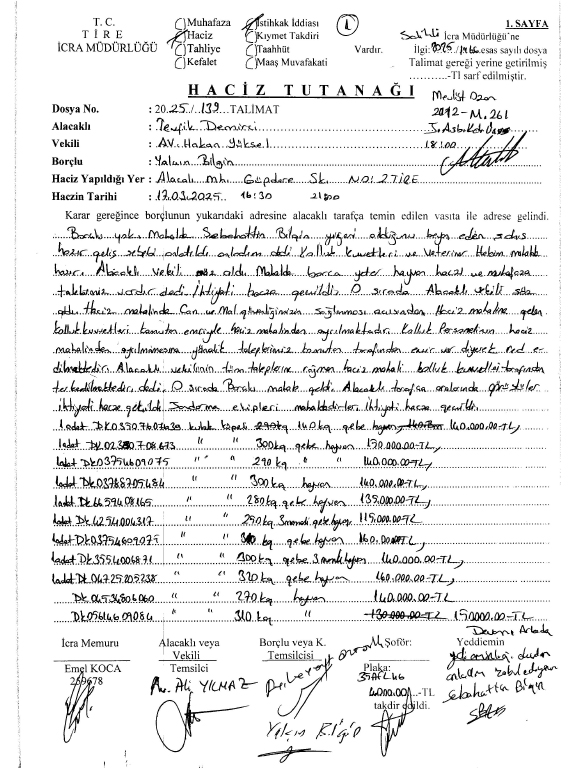 T. C.
TİRE
İCRA MÜDÜRLÜĞÜ
Muhafaza
Haciz
Tahliye
Kefalet
İstihkak İddiası
Kıymet Takdiri
Taahhüt
Maaş Muvafakati
1
Vardır.
1. SAYFA
Salihli İcra Müdürlüğü'ne
İlgi: 2025/ esas sayılı dosya
Talimat gereği yerine getirilmiş
-Tl sarf edilmiştir.
HACİZ TUTANAĞI
Dosya No. : 2025/139 TALİMAT
2012-M.261
Alacaklı : Tevfik Demirci
Vekili : AV. Hakan Yüksel
18:00
Borçlu : Yalçın Bilgin
Haciz Yapıldığı Yer : Alacalı mh. Güpdere Sk. NO: 2 TİRE
Haczin Tarihi : 17.03.2025 16:30 21:00
Karar gereğince borçlunun yukarıdaki adresine alacaklı tarafça temin edilen vasıta ile adrese gelindi.
Borçlu yok. Mahalde Sebahattin Bilgin yeğeni olduğunu beyan eden şahıs
hazır geliş sebebi anlatıldı anladım dedi Kolluk kuvvetleri ve Veteriner Hekim mahalde
hazır. Alacaklı vekili söz aldı. Mahalde borca yeter hayvan haczi ve muhafaza
talebimiz vardır dedi. İhtiyati hacze geçildi. O sırada Alacaklı vekili söz
aldı. Haciz mahalinde Can ve Mal güvenliğimizin sağlanması açısından Haciz mahaline gelen
kolluk kuvvetleri komutan emriyle haciz mahalinden ayrılmaktadır. Kolluk Personelinin haciz
mahalinden ayrılmamasına yönelik taleplerimiz komutan tarafından emir var diyerek red e-
dilmektedir. Alacaklı vekilinin tüm taleplerine rağmen haciz mahali kolluk kuvvetleri tarafından
terkedilmektedir, dedi. O sırada Borçlu mahale geldi. Alacaklı tarafla aralarında görüştüler
İhtiyati hacze geçildi. Jandarma ekipleri mahaldedirler. İhtiyati hacze geçildi.
1 adet kulak küpeli 140 kg gebe hayvan 140.000.00-TL,
1 adet " " 300 kg gebe hayvan 150.000-TL
1 adet DK03754609075 " " 290 kg " " 140.000.00-TL,
1 adet DK03787705484 " " 300 kg hayvan 140.000.00-TL,
1 adet DK 6659408165 " " 280 kg gebe hayvan 135.000-TL,
1 adet DK 4254004317 " " 290 kg 3 gebe hayvan 115.000-TL
1 adet DK03754609075 " " gebe hayvan 160.000.00-TL,
1 adet DK 3554006871 " " 300 kg gebe 3 hayvan 140.000.00-TL
1 adet DK 04725205238 " " 320 kg gebe hayvan 160.000.00-TL,
" " 270 kg hayvan 140.000.00-TL
DK 05614609084 " " 310 kg " 130.000.00-TL 150000.00-TL,
İcra Memuru
Emel KOCA
259678
Alacaklı veya
Vekili
Temsilci
Av. Ali YILMAZ
Borçlu veya K.
Temsilcisi
Yalçın Bilgin
Şoför:
Plaka:
4000.00/-TL
takdir edildi.
Devamı Arkada
Yeddiemin
anladım kabul ediyorum
Sebahattin Bilgin